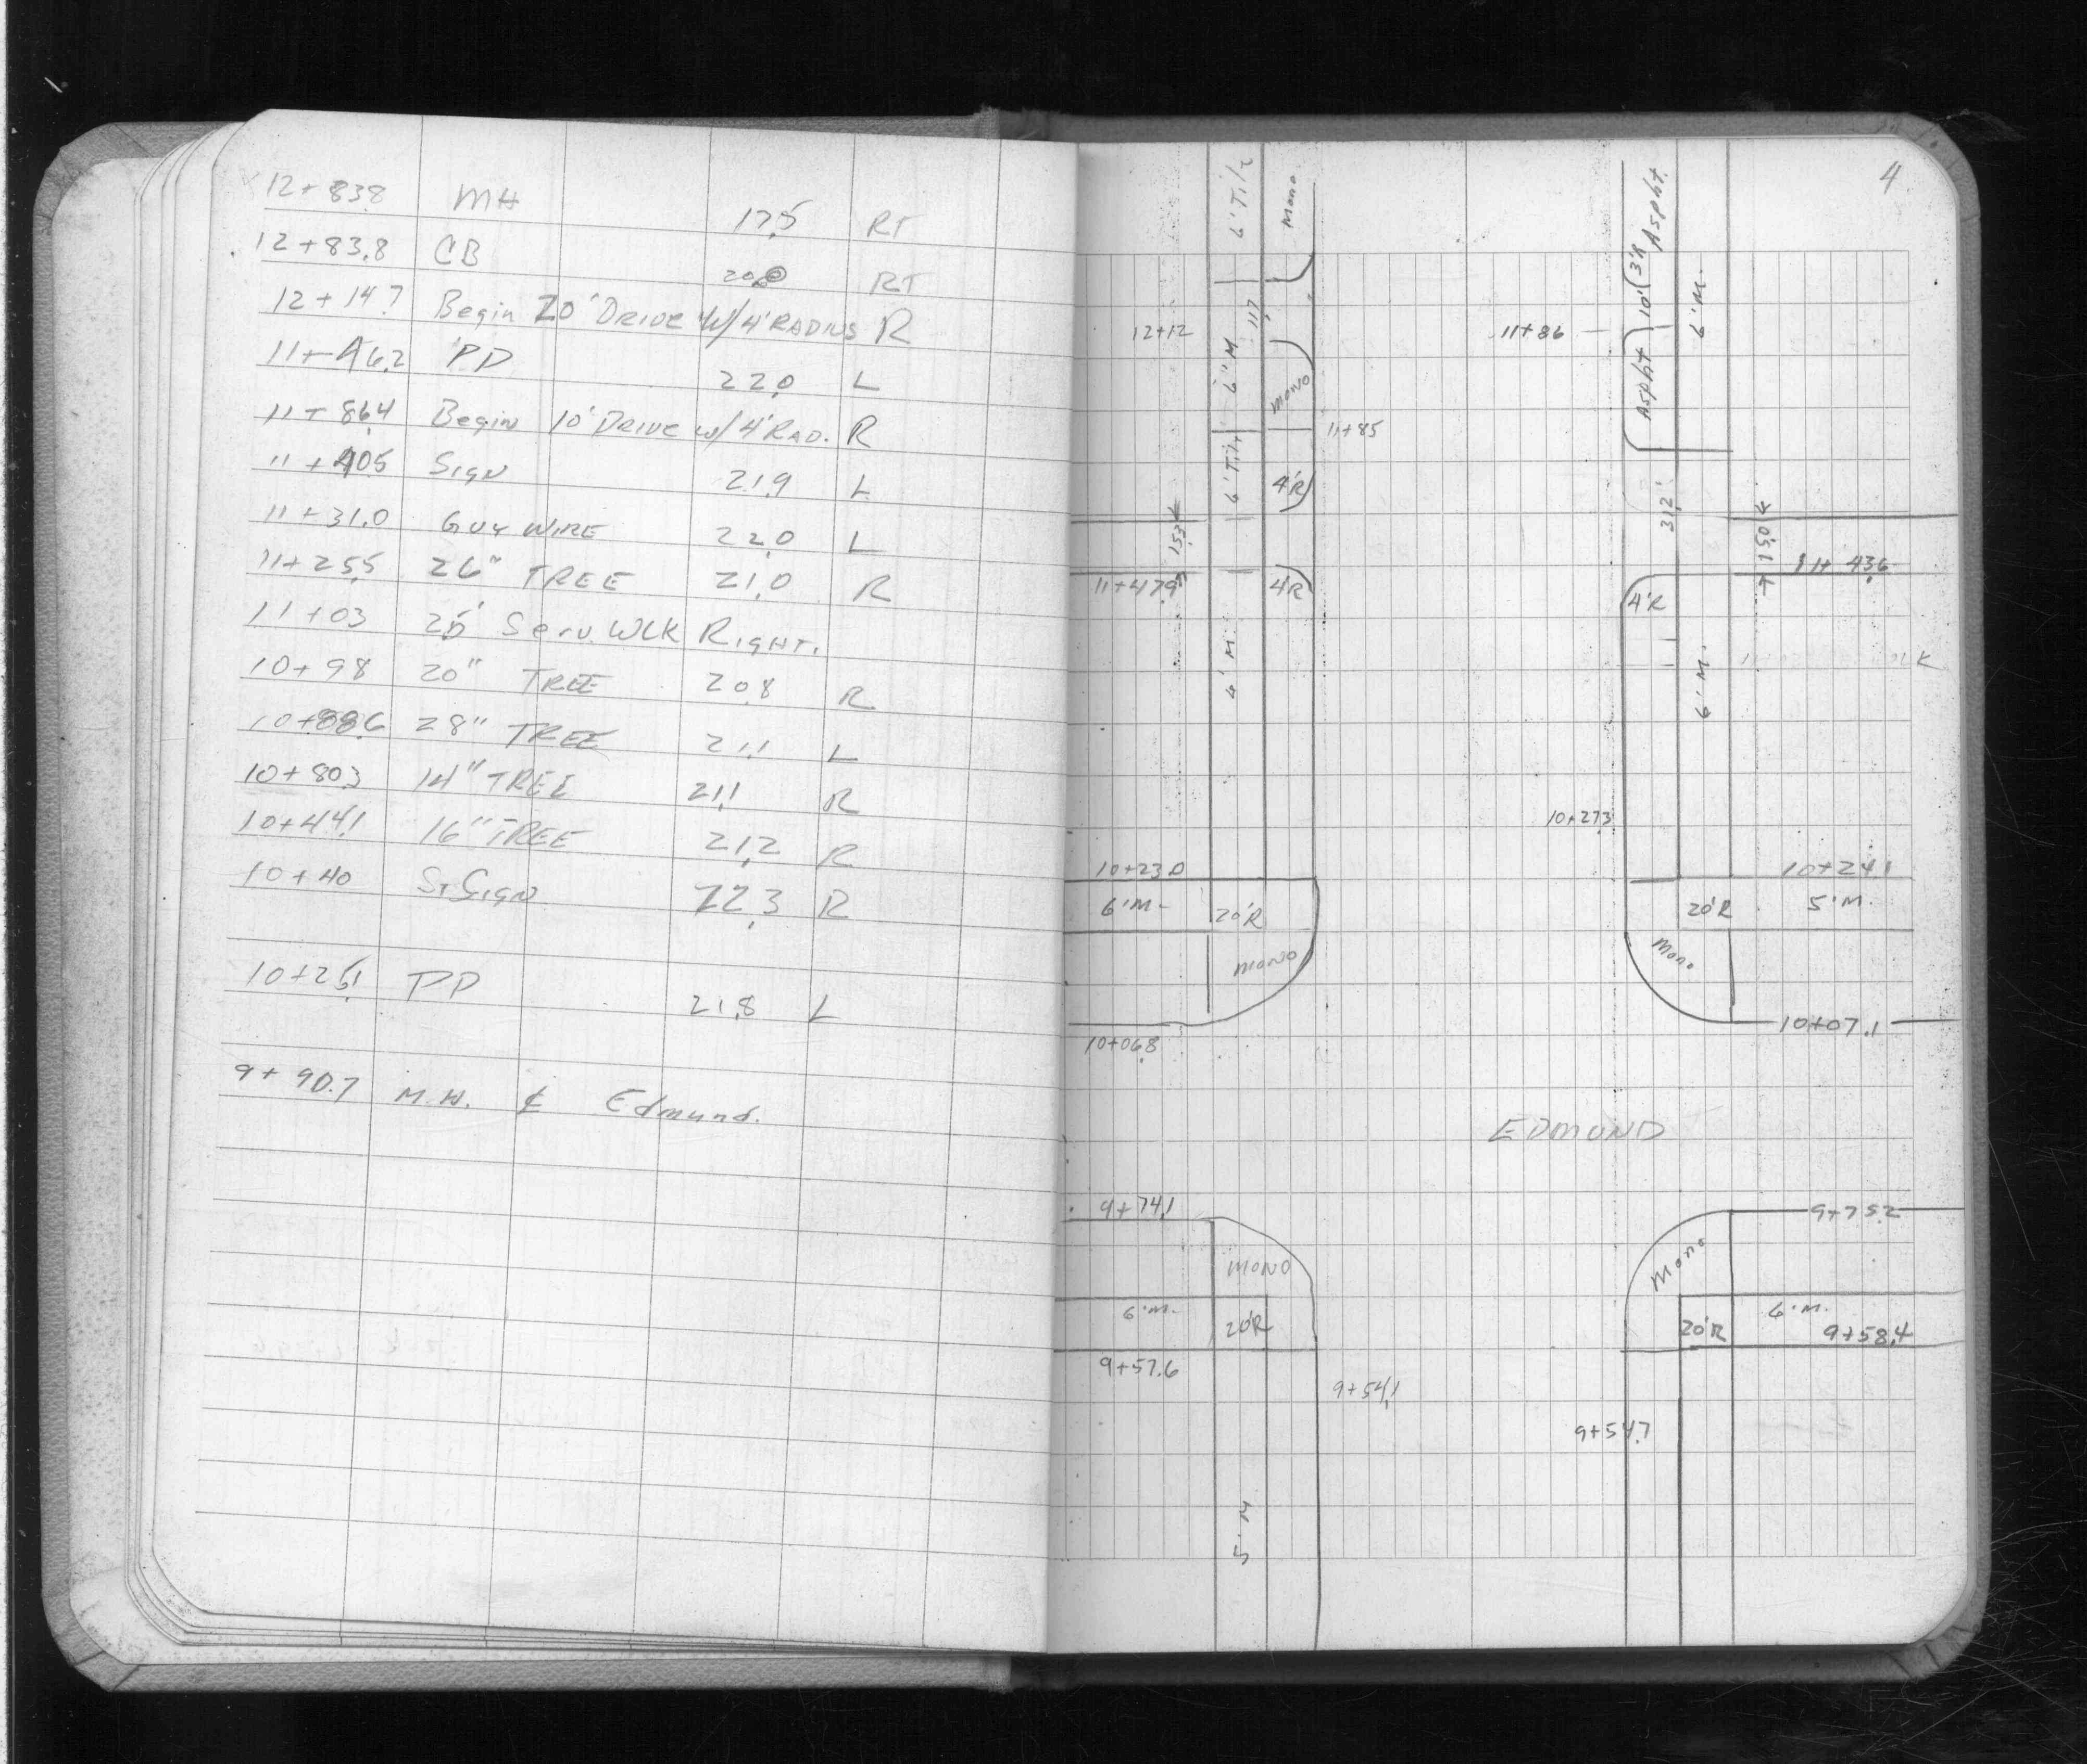 12+83.8 MH 17.5 RT
12+83.8 CB 20.0 RT
12+14.7 Begin 20' DRIVE W/4' RADIUS R
11+46.2 PP 22.0 L
11+86.4 Begin 10' DRIVE w/4' RAD. R
11+40.5 SIGN 21.9 L
11+31.0 GUY WIRE 22.0 L
11+25.5 26" TREE 21.0 R
11+03 Serv. WLK RIGHT.
10+98 20" TREE 20.8 R
10+88.6 28" TREE 21.1 L
10+80.3 14" TREE 21.1 R
10+44.1 16" TREE 21.2 R
10+40 St SIGN 22.3 R
10+25.1 PP 21.8 L
9+90.7 M.H. ₵ Edmund.
4
6' Tile
Mono
3'R
Aspht.
10'
6' M.
12+12
11.7
11+86
6' M
Mono
Aspht
11+85
6' Tile
4'R
31.2'
15.3
15.0
11+47.9
4'R
11+43.6
4'R
4' M.
6' M.
10+27.3
10+23.0
10+24.1
6' M-
20'R
20'R
5' M.
Mono
Mono
10+06.8
10+07.1
EDMUND
9+74.1
9+75.2
MONO
Mono
6' M.
20'R
20'R
6' M.
9+58.4
9+57.6
9+54.1
9+54.7
5' M